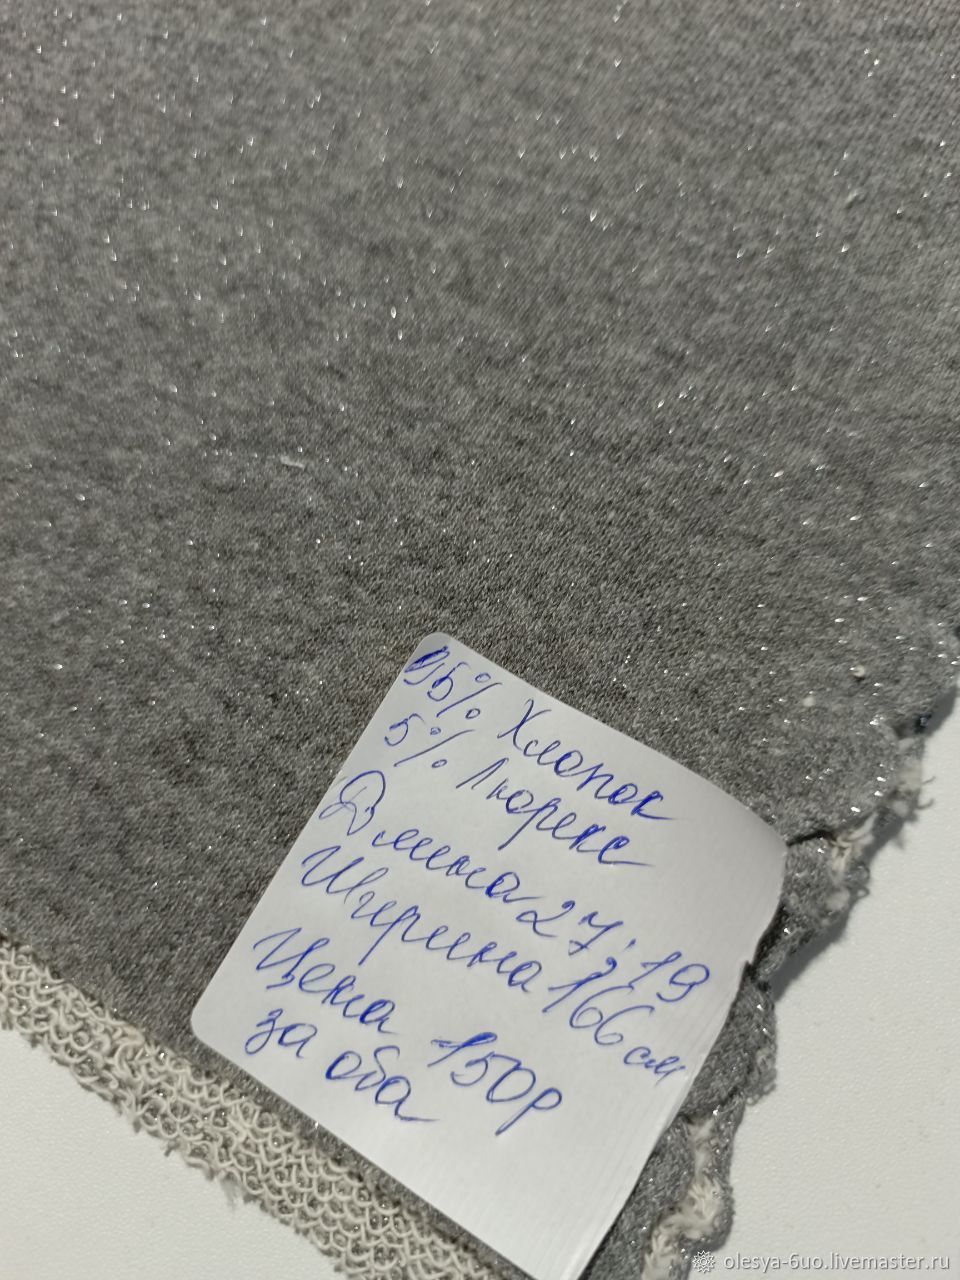 95% Хлопок
5% Люрекс
Длина 27, 19
Ширина 166 см
Цена 150р
за оба
olesya-6uo.livemaster.ru